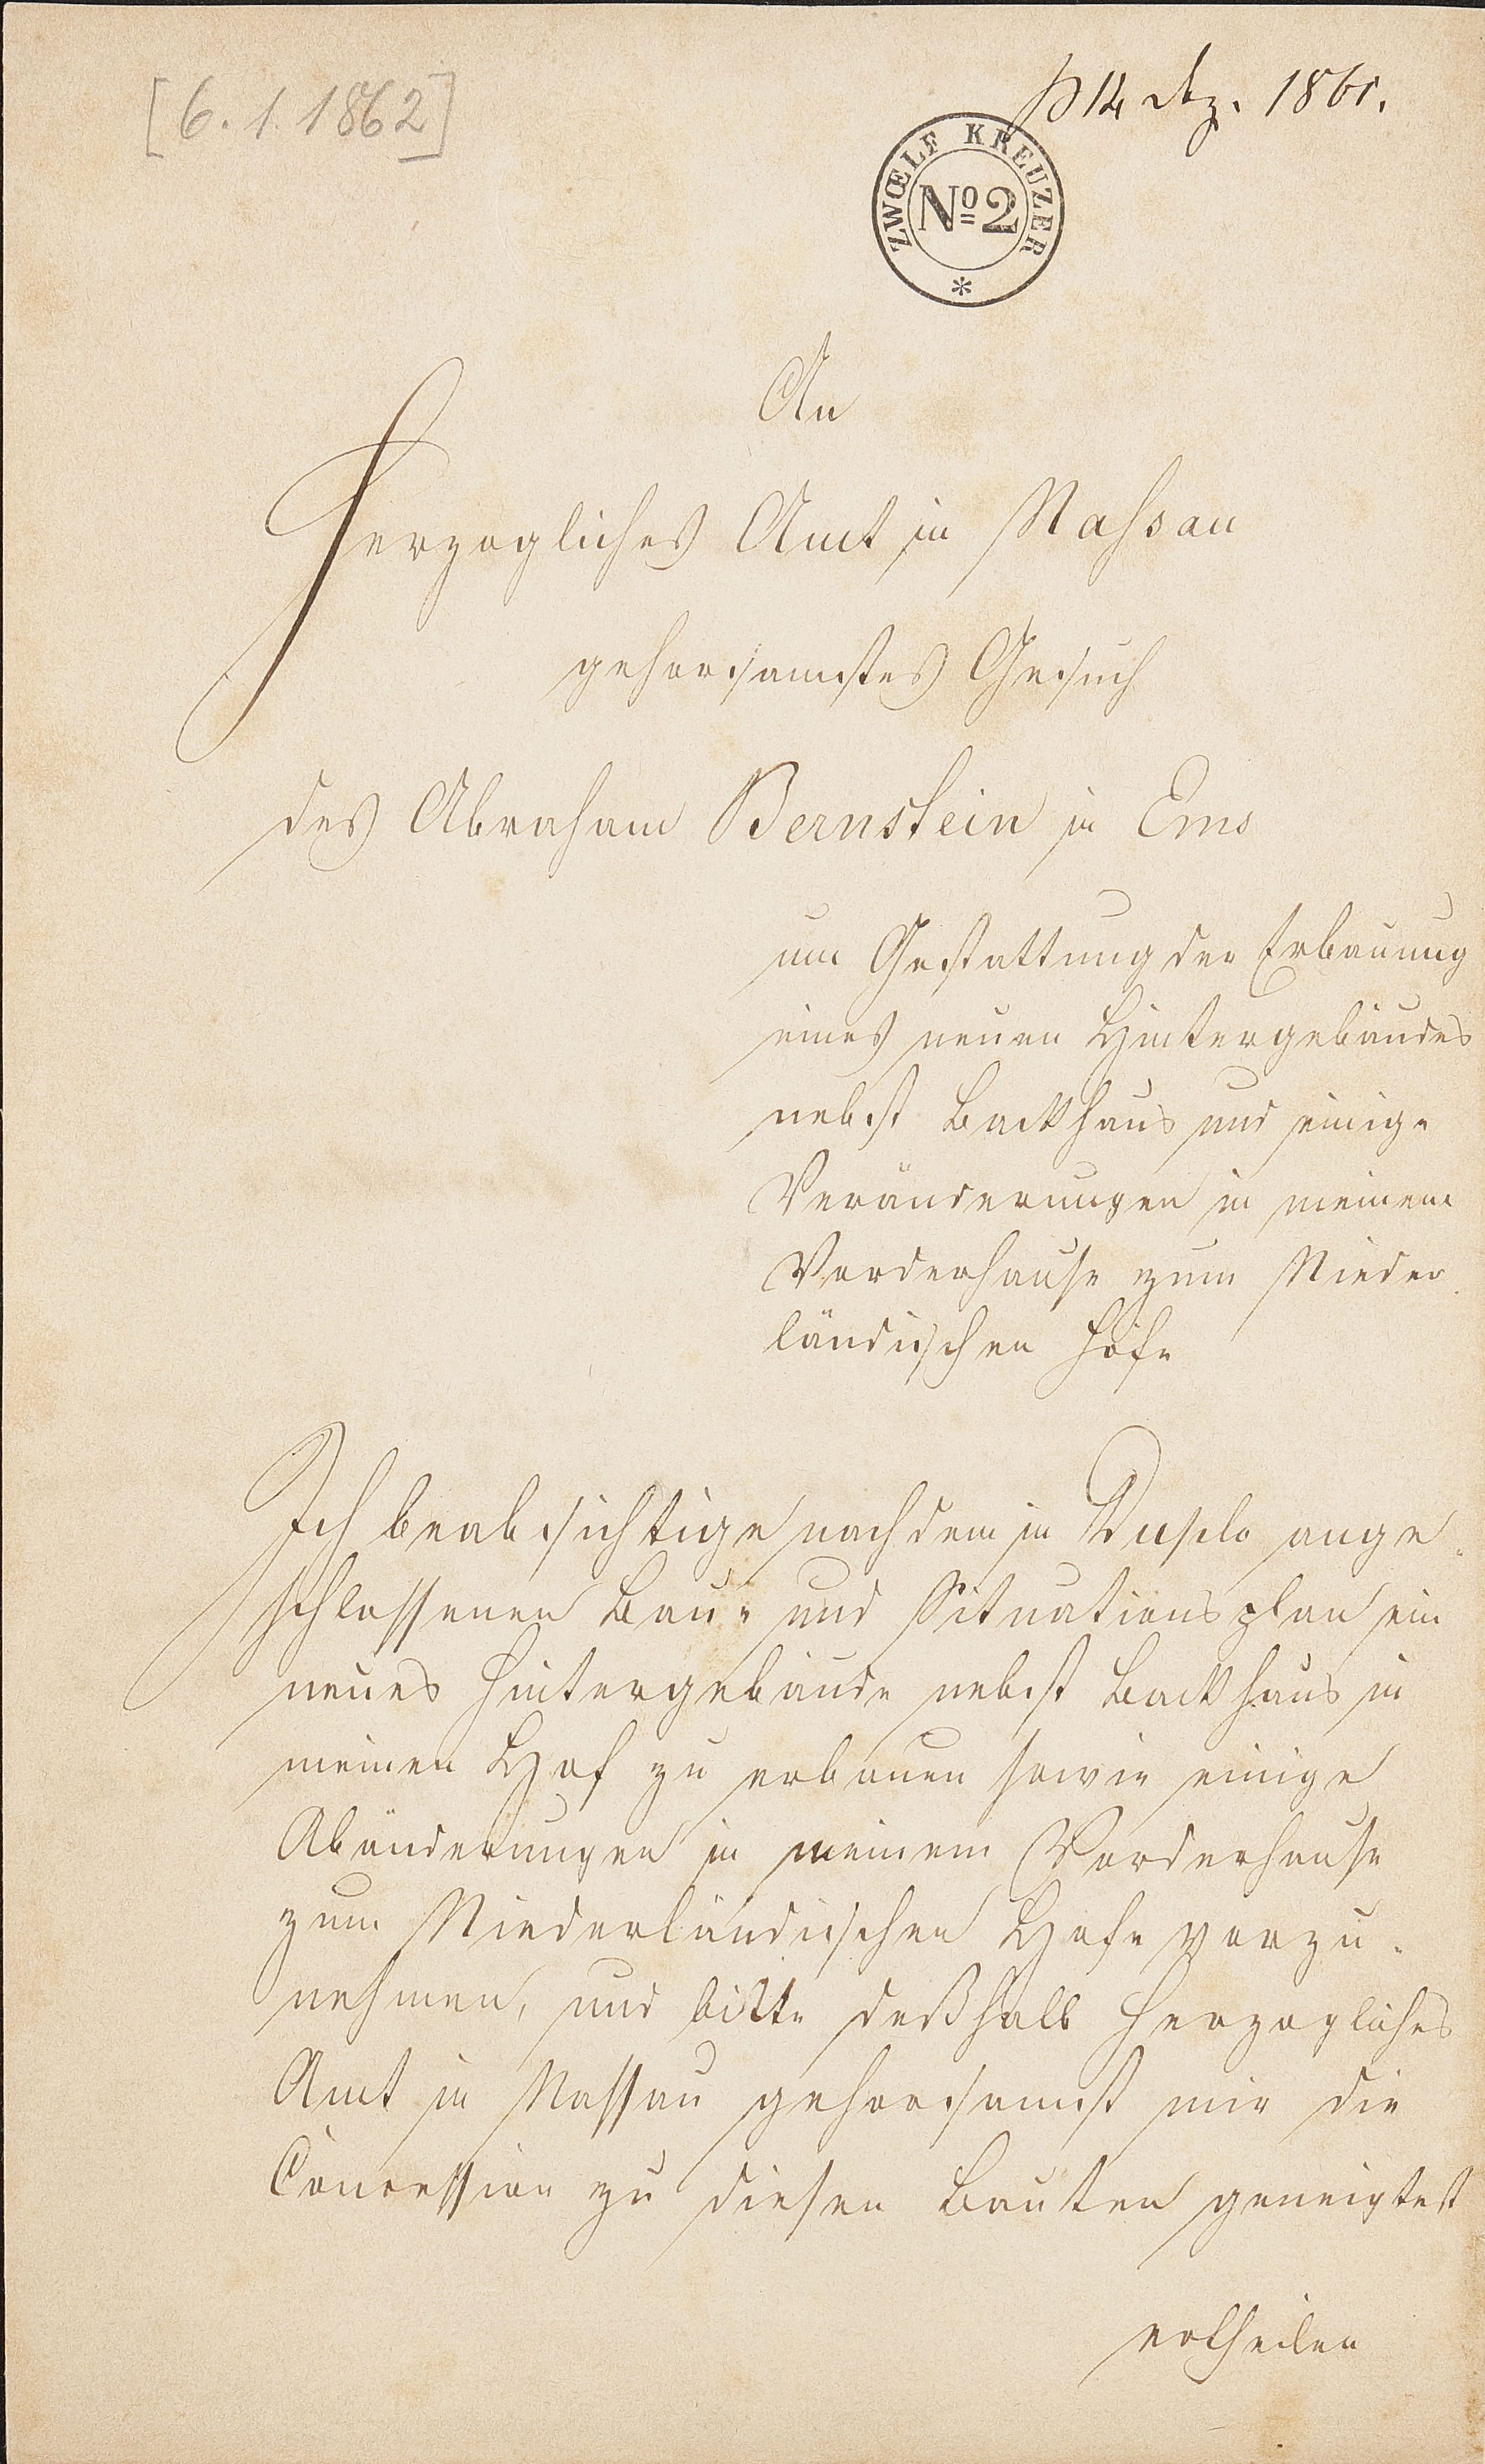 [6.1.1862]
14 dez. 1861.
ZWŒLF KREUZER
No 2
*
An
Herzogliches Amt in Nassau
gehorsamstes Gesuch
des Abraham Bernstein in Ems
um Gestattung der Erbauung
eines neuen Hintergebäudes
nebst Backhaus und einige
Veränderungen in meinem
Vorderhause zum Nieder
ländischen Hofe
Ich beabsichtige nach dem in Duplo ange-
schlossenen Bau- und Situationsplan ein
neues Hintergebäude nebst Backhaus in
meinen Hof zu erbauen sowie einige
Abänderungen in meinem Vorderhause
zum Niederländischen Hofe vorzu-
nehmen, und bitte deßhalb Herzogliches
Amt in Nassau gehorsamst mir die
Concession zu diesen Bauten geneigtest
ertheilen